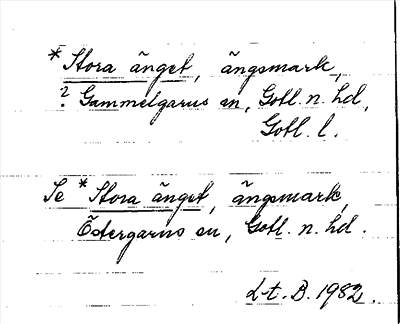 *Stora änget, ängsmark,
? Gammelgarns sn, Gotl. n. hd,
Gotl. l.
Se *Stora änget, ängsmark,
Östergarns sn, Gotl. n. hd.
L-t. B. 1982.